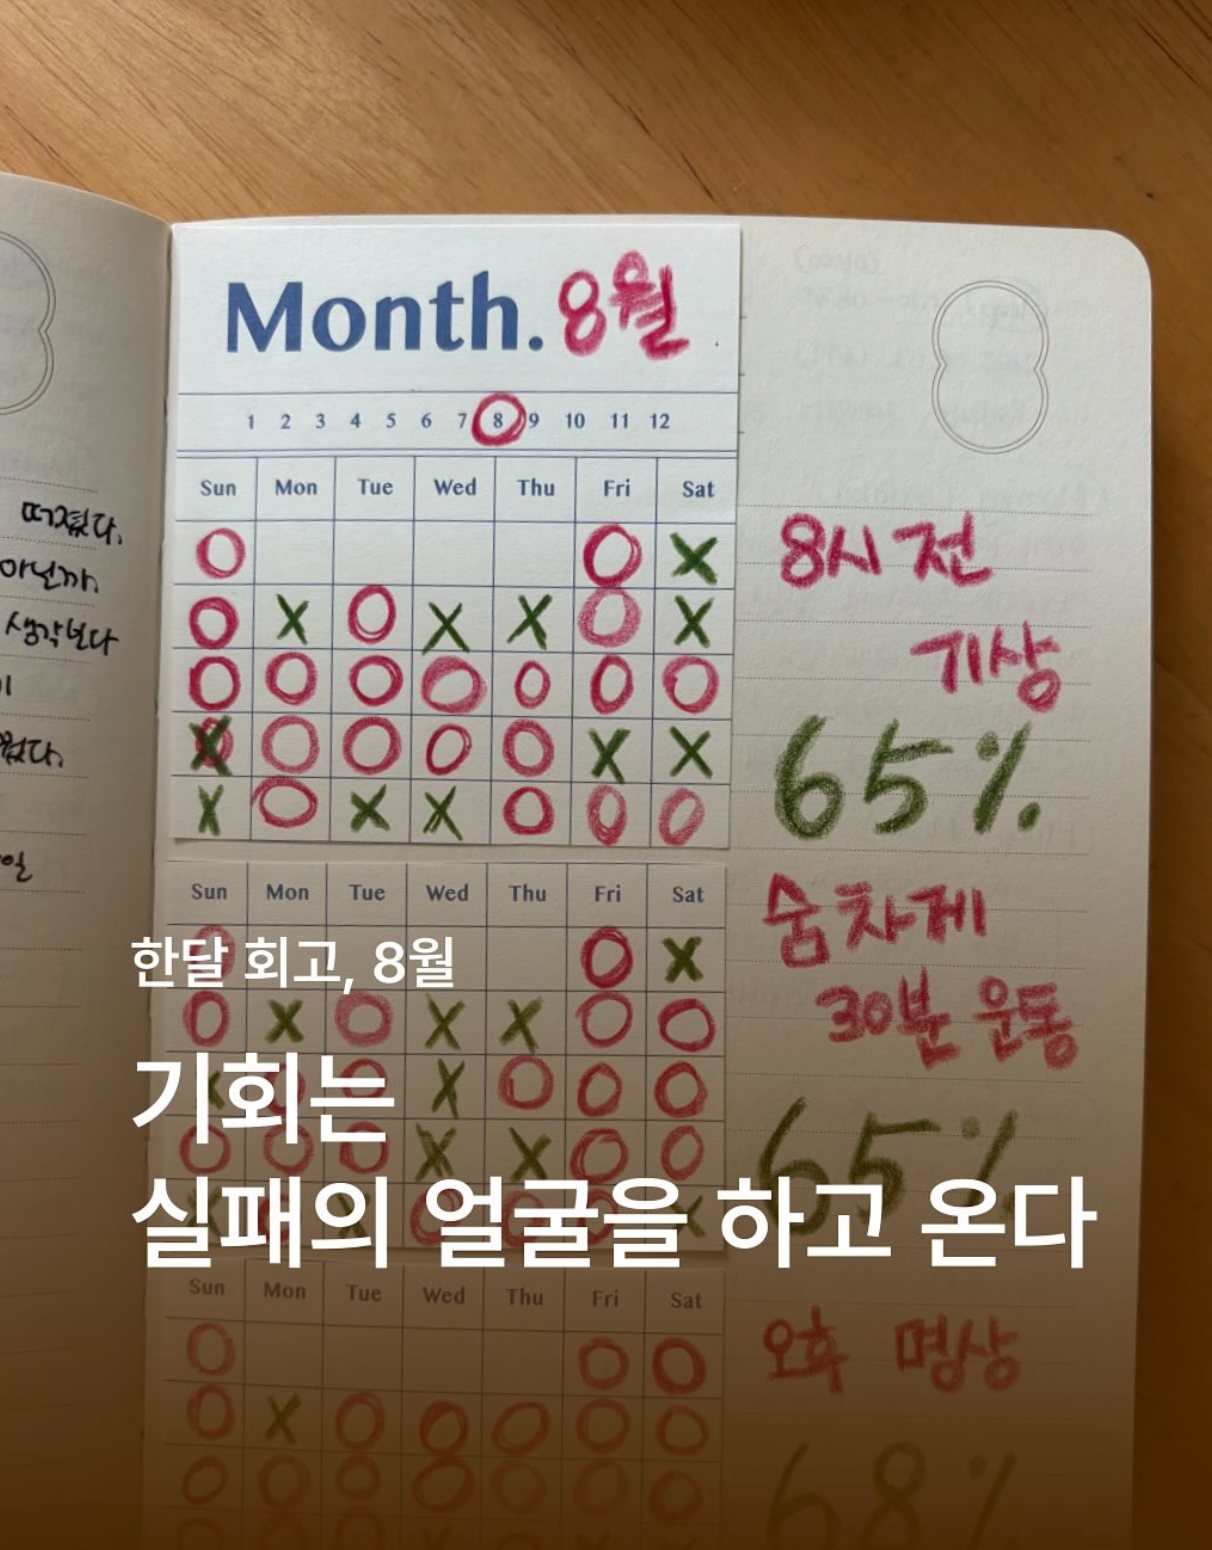 Month. 8월
1 2 3 4 5 6 7 8 9 10 11 12
Sun Mon Tue Wed Thu Fri Sat
O O X
O X O X X O X
O O O O O O O
X O O O O X X
X O X X O O O
8시 전
기상
65%
떠졌다.
아닌가.
생각보다
Sun Mon Tue Wed Thu Fri Sat
O X
O X O X X O O
X O O O
X X O O
숨차게
30분 운동
65%
한달 회고, 8월
기회는
실패의 얼굴을 하고 온다
Sun Mon Tue Wed Thu Fri Sat
O O O
O X O O O O O
O O O O O O O
오후 명상
68%